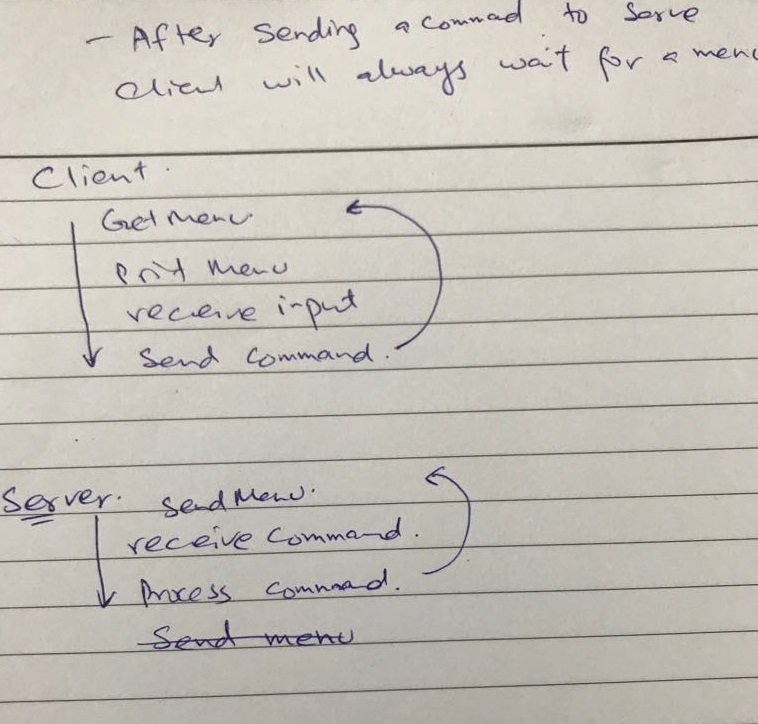 - After sending a commad to serve
client will always wait for a menu
Client.
Get Menu.
print Menu
receive input
Send Command.
Server. Send Menu.
receive Command.
Process command.
Send menu